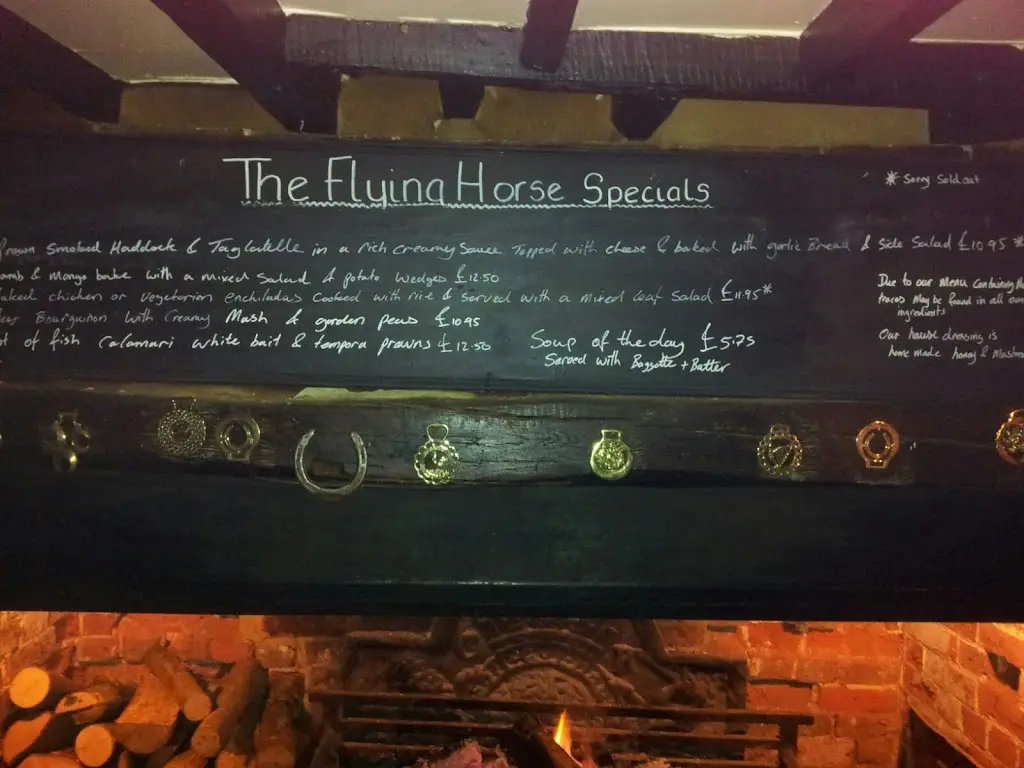 The Flying Horse Specials
* Sorry Sold out
Prawn Smoked Haddock & Tagliatelle in a rich creamy Sauce Topped with cheese & baked with garlic Bread & Side Salad £10.95 *
amb & Mango bake with a mixed Salad & potato wedges £12.50
aked chicken or vegetarian enchiladas Cooked with rice & Served with a Mixed leaf Salad £11.95*
Bourguinon with Creamy Mash & garden peas £10.95
ot of fish Calamari white bait & tempora prawns £12.50
Soup of the day £5.75
Served with Baggette + Butter
Due to our Menu Containing
traces May be found in all our
ingredients
Our house dressing is
home made honey &